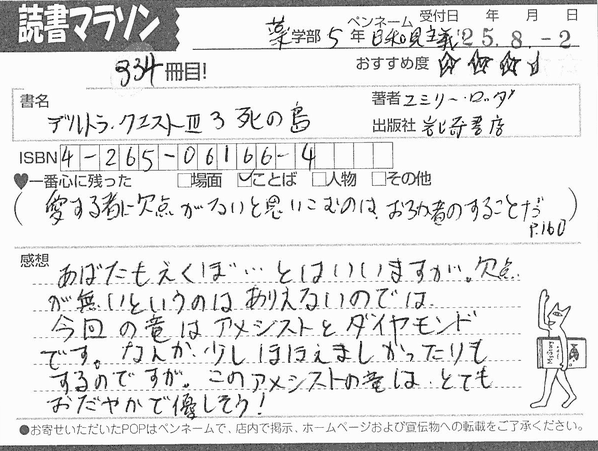 読書マラソン
薬学部 5年 ペンネーム 日和見主義 受付日 年 月 日 25.8.-2
834冊目! おすすめ度 ☆☆☆
書名 デルトラ・クエストⅢ 3 死の島
著者 エミリー・ロッダ
出版社 岩崎書店
ISBN 4-265-06166-4
♥一番心に残った □場面 ☑ことば □人物 □その他
(愛する者に欠点がないと思いこむのは、おろか者のすることだ P.160)
感想
あばたもえくぼ…とはいいますが。欠点
が無いというのはありえないのでは
今回の竜はアメシストとダイヤモンド
です。なんか少しほほえましかったりも
するのですが。このアメシストの竜は、とても
おだやかで優しそう!
●お寄せいただいたPOPはペンネームで、店内で掲示、ホームページおよび宣伝物への転載をご了承ください。